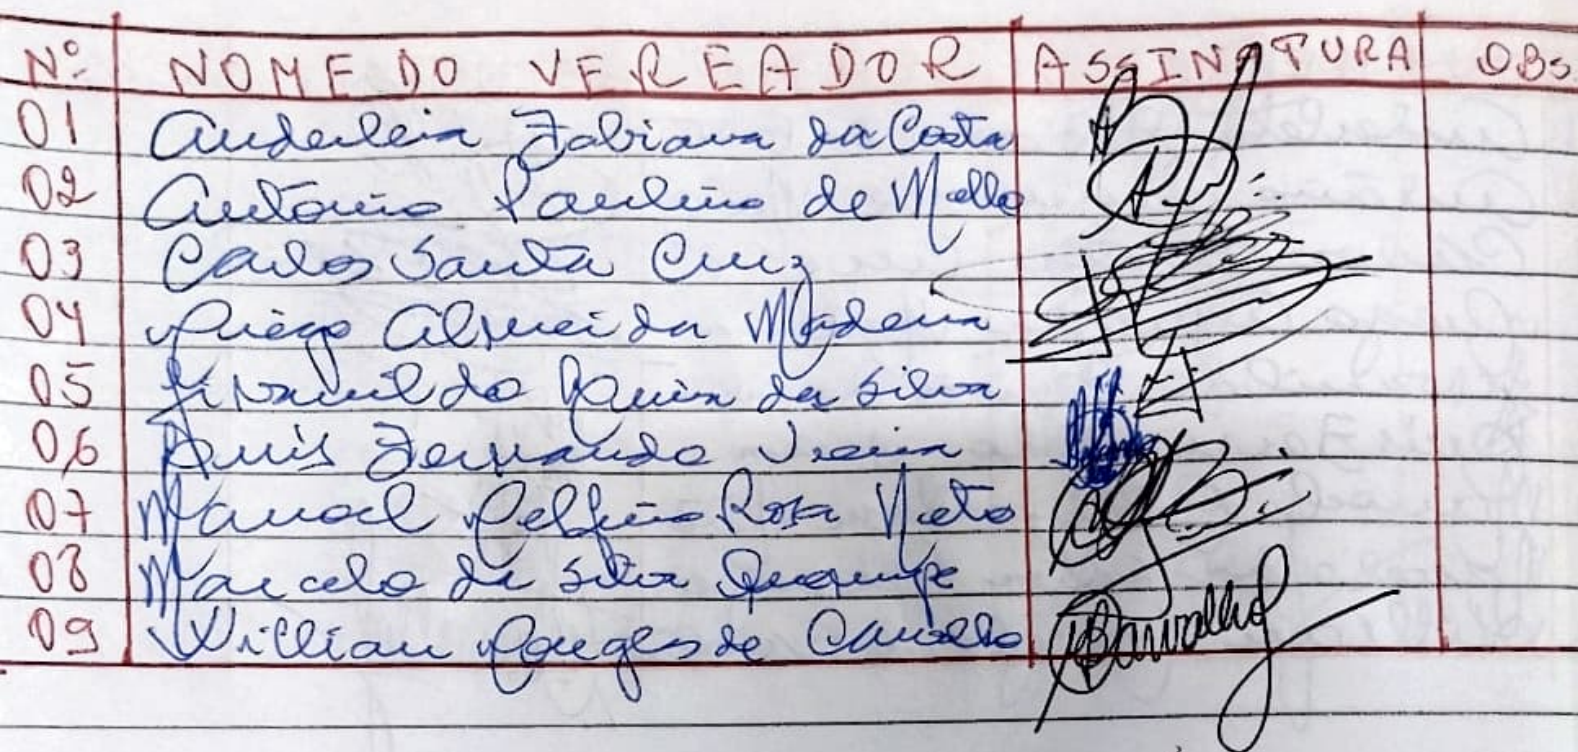 Nº NOME DO VEREADOR ASSINATURA OBS
01 Anderleia Fabiana da Costa
02 Antônio Paulino de Mello
03 Carlos Santa Cruz
04 Diego Almeida Madeira
05 da Silva
06 Luís Fernando Vieira
07 Manoel Delfino Rosa Neto
08 Marcelo da Silva
09 Willian Douglas de Carvalho Carvalho